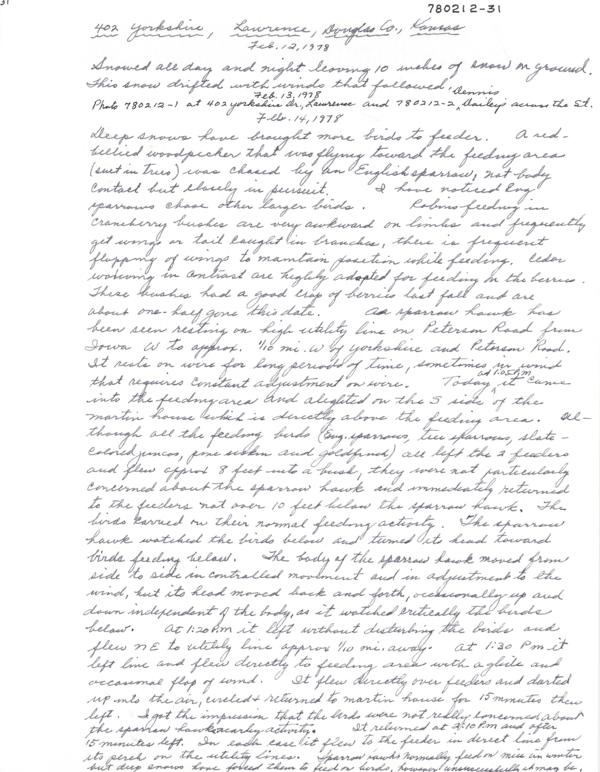 31
780212-31
402 Yorkshire, Lawrence, Douglas Co., Kansas
Feb. 12, 1978
Snowed all day and night leaving 10 inches of snow on ground.
This snow drifted with winds that followed.
Feb. 13, 1978
Photo 780212-1 at 402 Yorkshire Dr., Lawrence and 780212-2, Dennis Dailey across the St.
Feb. 14, 1978
Deep snows have brought more birds to feeder. A red-
bellied woodpecker that was flying toward the feeding area
(suet in trees) was chased by an English sparrow, not body
contact but closely in pursuit. I have noticed Eng
sparrows chase other larger birds. Robins feeding in
craneberry bushes are very awkward on limbs and frequently
get wings or tail caught in branches, there is frequent
flapping of wings to maintain position while feeding. Cedar
waxwing in contrast are highly adapted for feeding on the berries.
These bushes had a good crop of berries last fall and are
about one-half gone this date. A sparrow hawk has
been seen resting on high utility line on Peterson Road from
Iowa W to approx. 1/10 mi. W of Yorkshire and Peterson Road.
It rests on wire for long periods of time, sometimes in wind
that requires constant adjustment on wire. Today, at 1:05 P.M. it came
into the feeding area and alighted on the S side of the
martin house which is directly above the feeding area. Al-
though all the feeding birds (Eng. sparrows, tree sparrows, slate-
colored juncos, pine siskin and goldfinch) all left the 2 feeders
and flew approx 8 feet into a bush, they were not particularly
concerned about the sparrow hawk and immediately returned
to the feeders not over 10 feet below the sparrow hawk. The
birds carried on their normal feeding activity. The sparrow
hawk watched the birds below and turned its head toward
birds feeding below. The body of the sparrow hawk moved from
side to side in controlled movement and in adjustment to the
wind, but its head moved back and forth, occasionally up and
down independent of the body, as it watched critically the birds
below. At 1:20 P.M it left without disturbing the birds and
flew NE to utility line approx 1/10 mi. away. At 1:30 P.M it
left line and flew directly to feeding area with a glide and
occasional flap of wind. It flew directly over feeders and darted
up into the air, circled & returned to martin house for 15 minutes then
left. I got the impression that the birds were not really concerned about
the sparrow hawk activity. It returned at 2:10 P.M and after
15 minutes left. In each case it flew to the feeder in direct line from
its perch on the utility lines. Sparrow hawks normally feed on mice in winter
but deep snows have forced them to feed on birds, however unsuccessfully it may be.